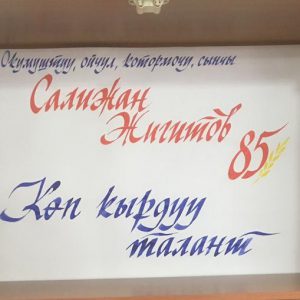 Окумуштуу, ойчул, котормочу, сынчы
Салижан
Жигитов
85
Көп кырдуу
талант